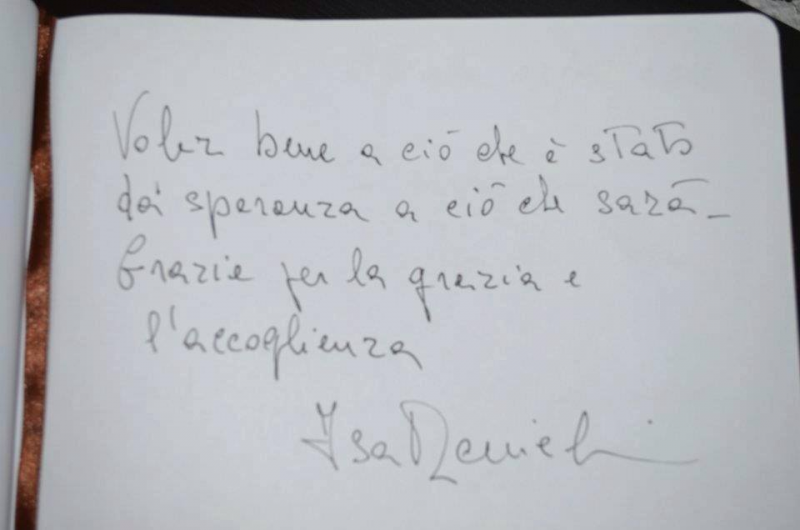 Voler bene a ciò che è stato
dà speranza a ciò che sarà_
Grazie per la grazia e
l'accoglienza
Isa Danieli